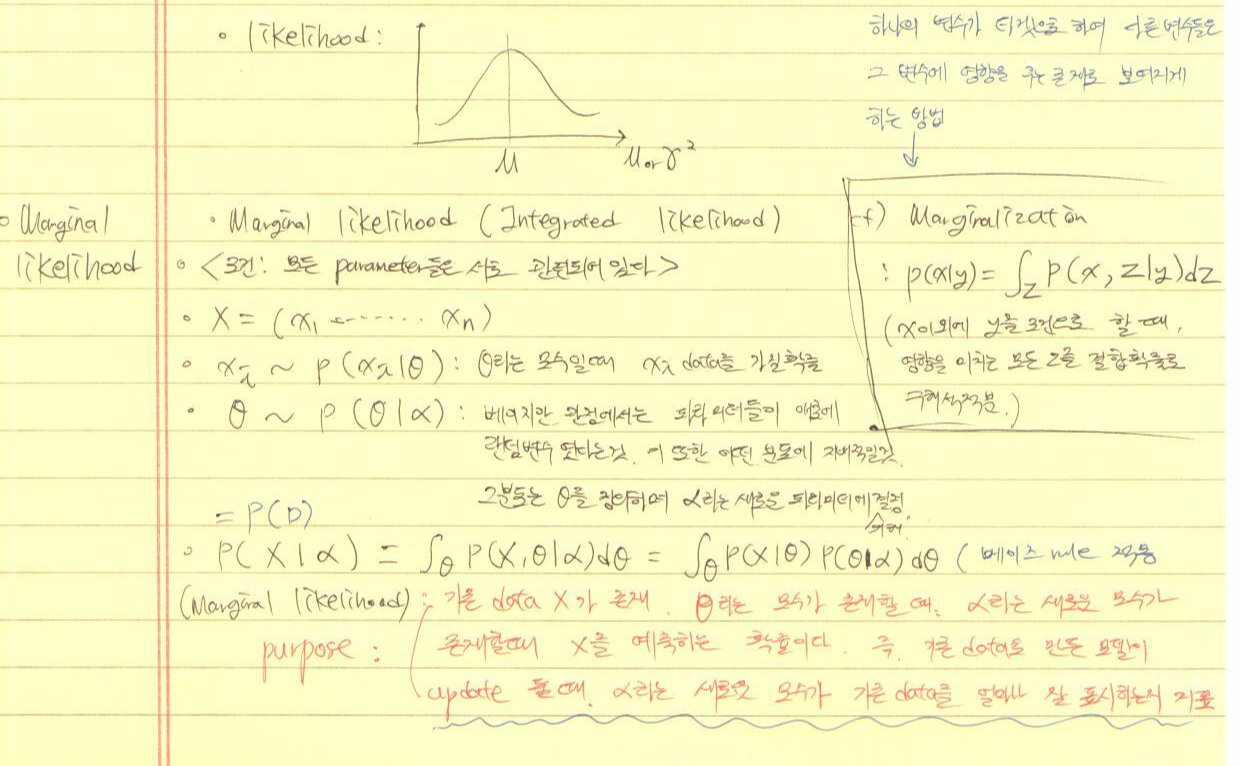 하나의 변수가 타겟으로 하여 다른변수들은
그 변수에 영향을 주는 존재로 보여지게
하는 방법
• likelihood:
μ
μ or σ²
• Marginal likelihood
• Marginal likelihood (Integrated likelihood)
• <조건: 모든 parameter들은 서로 관련되어 있다>
• X = (x₁ ........ xₙ)
• xᵢ ~ p(xᵢ|θ): θ라는 모수일때 xᵢ data를 가질확률
• θ ~ p(θ|α): 베이지안 관점에서는 파라미터들이 애초에
랜덤변수 였다는것. 이 또한 어떤 분포에 지배적일것.
그분포는 θ를 정의하며 α라는 새로운 파라미터에 의해 결정.
cf) Marginalization
: p(x|y) = ∫_z p(x, z|y)dz
(x이외에 y를 조건으로 할때,
영향을 미치는 모든 z를 결합확률로
구해서 적분.)
= P(D)
• P(X|α) = ∫_θ P(X,θ|α)dθ = ∫_θ P(X|θ) P(θ|α)dθ (베이즈 rule 적용
(Marginal likelihood): 기존 data X가 존재. θ라는 모수가 존재할때. α라는 새로운 모수가
purpose: 존재할때 X를 예측하는 확률이다. 즉, 기존 data로 만든 모델이
update 될때. α라는 새로운 모수가 기존 data를 얼마나 잘 표시하는지 지표